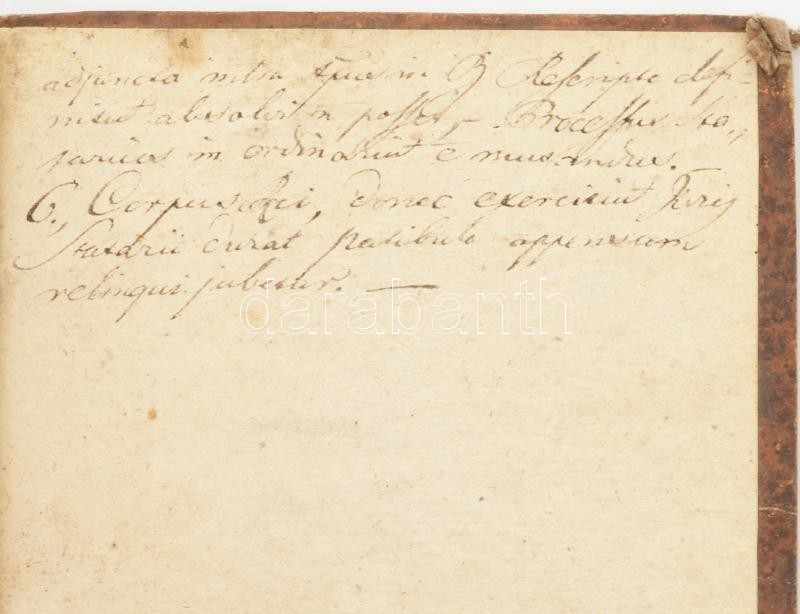 adjuncta intra quos in B Rescripto defi-
niut absolvi n posset, - Processus Sta„
tarius in ordinariut e mutandus.
6., Corpus Rei, donec exercitiut Juris
Statarii durat patibulo appensum
relinqui jubetur. —
darabanth